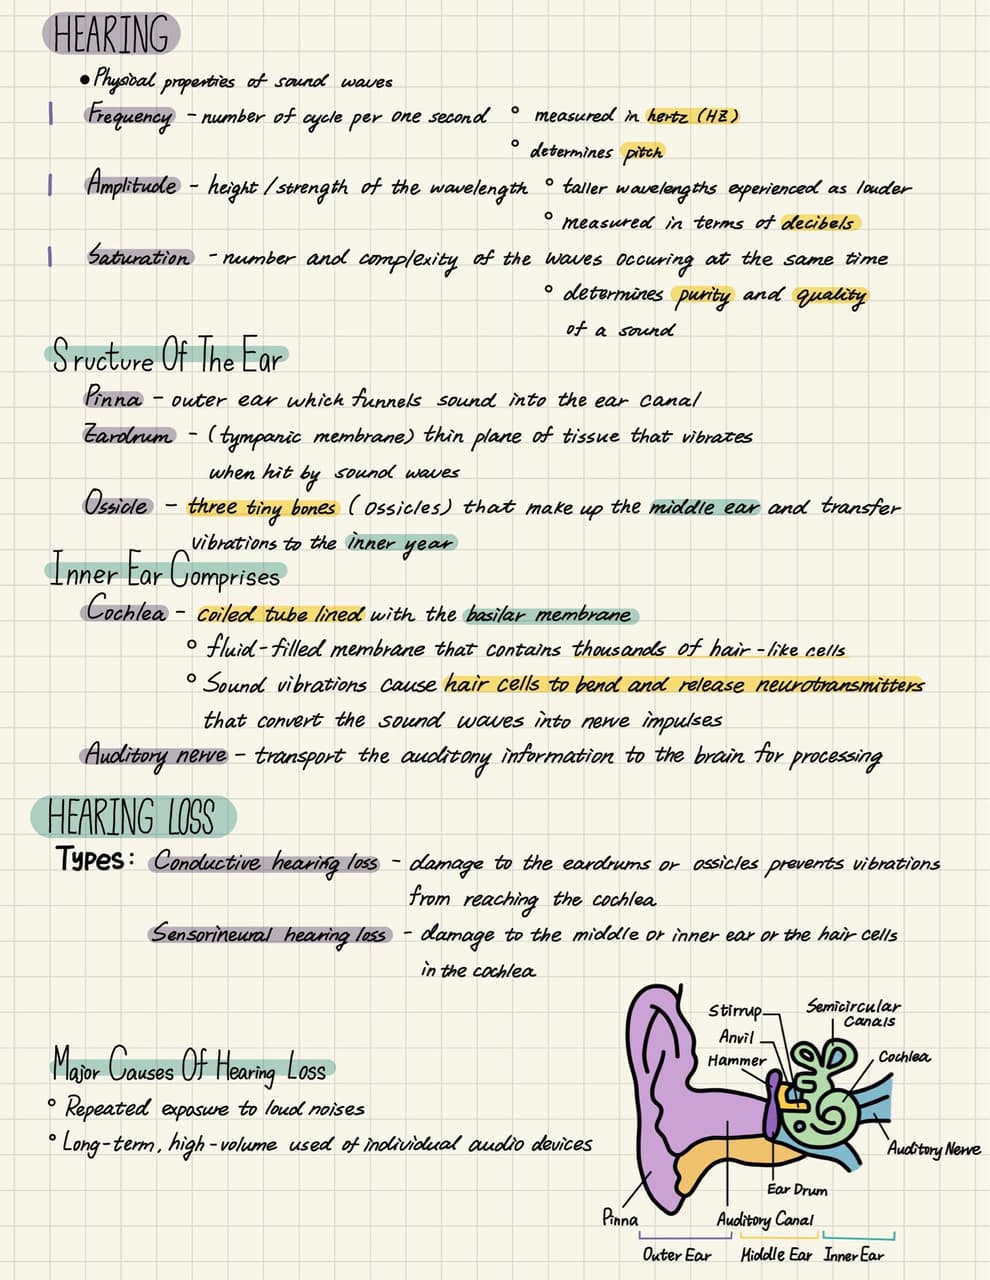 HEARING
• Physical properties of sound waves
Frequency - number of cycle per one second ° measured in hertz (HZ)
° determines pitch
Amplitude - height/strength of the wavelength ° taller wavelengths experienced as louder
° measured in terms of decibels
Saturation - number and complexity of the waves occuring at the same time
° determines purity and quality
of a sound
Sructure Of The Ear
Pinna - outer ear which funnels sound into the ear canal
Eardrum - (tympanic membrane) thin plane of tissue that vibrates
when hit by sound waves
Ossicle - three tiny bones (ossicles) that make up the middle ear and transfer
vibrations to the inner year
Inner Ear Comprises
Cochlea - coiled tube lined with the basilar membrane
° fluid-filled membrane that contains thousands of hair-like cells
° Sound vibrations cause hair cells to bend and release neurotransmitters
that convert the sound waves into nerve impulses
Auditory nerve - transport the auditony information to the brain for processing
HEARING LOSS
Types: Conductive hearing loss - damage to the eardrums or ossicles prevents vibrations
from reaching the cochlea
Sensorineural hearing loss - damage to the middle or inner ear or the hair cells
in the cochlea
Major Causes Of Hearing Loss
° Repeated exposure to loud noises
° Long-term, high-volume used of individual audio devices
Stirrup
Semicircular
Canals
Anvil
Hammer
Cochlea
Auditory Nerve
Ear Drum
Pinna
Auditory Canal
Outer Ear
Middle Ear
Inner Ear